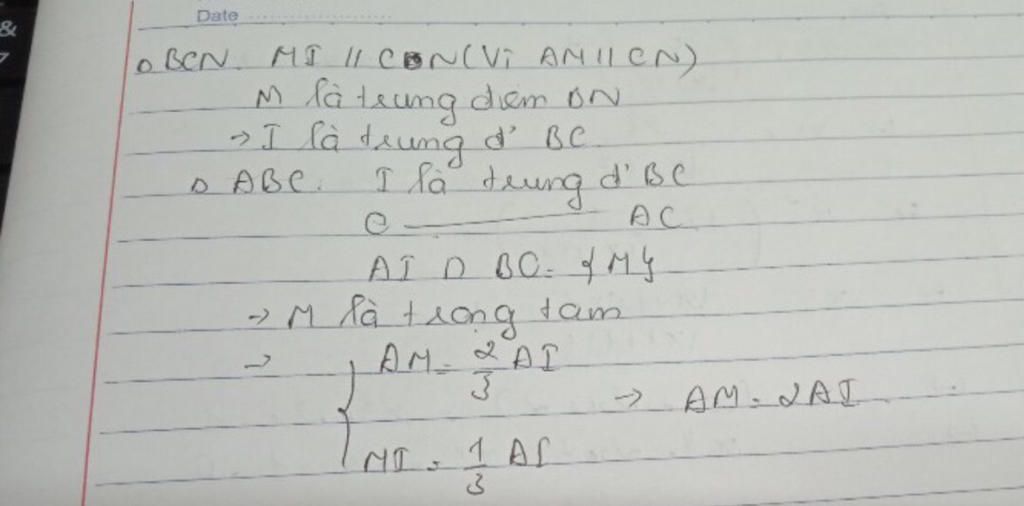 Date
Δ BCN. MI // CN (Vì AM // CN)
M là trung điểm BN
→ I là trung đ' BC
Δ ABC. I là trung đ' BC
O ——— AC
AI ∩ BO = {M}
→ M là trọng tam
→ { AM = 2/3 AI
→ AM = 2AI
MI = 1/3 AI